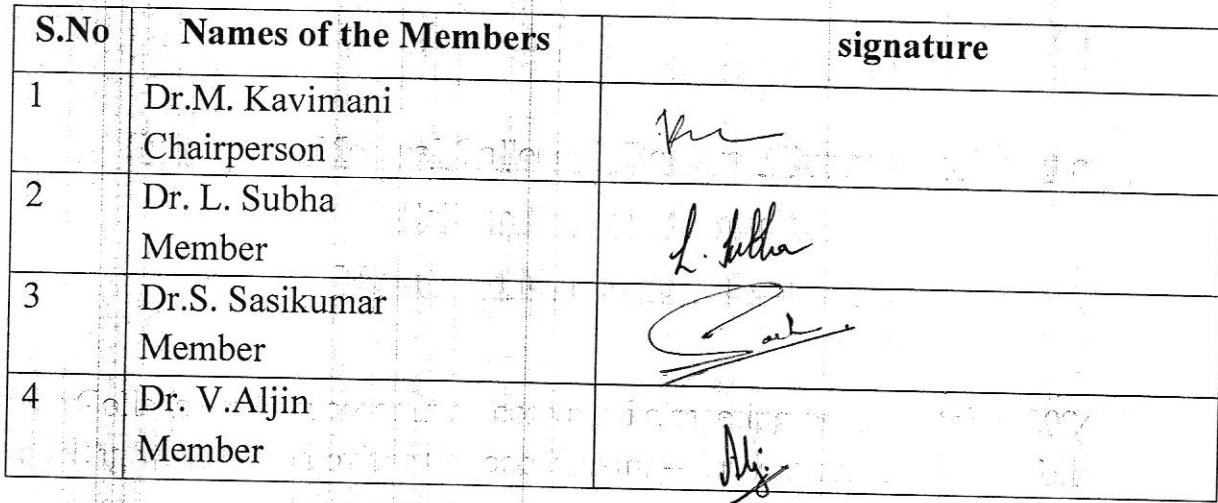 S.No Names of the Members signature
1 Dr.M. Kavimani
Chairperson
2 Dr. L. Subha L. Subha
Member
3 Dr.S. Sasikumar
Member
4 Dr. V.Aljin
Member